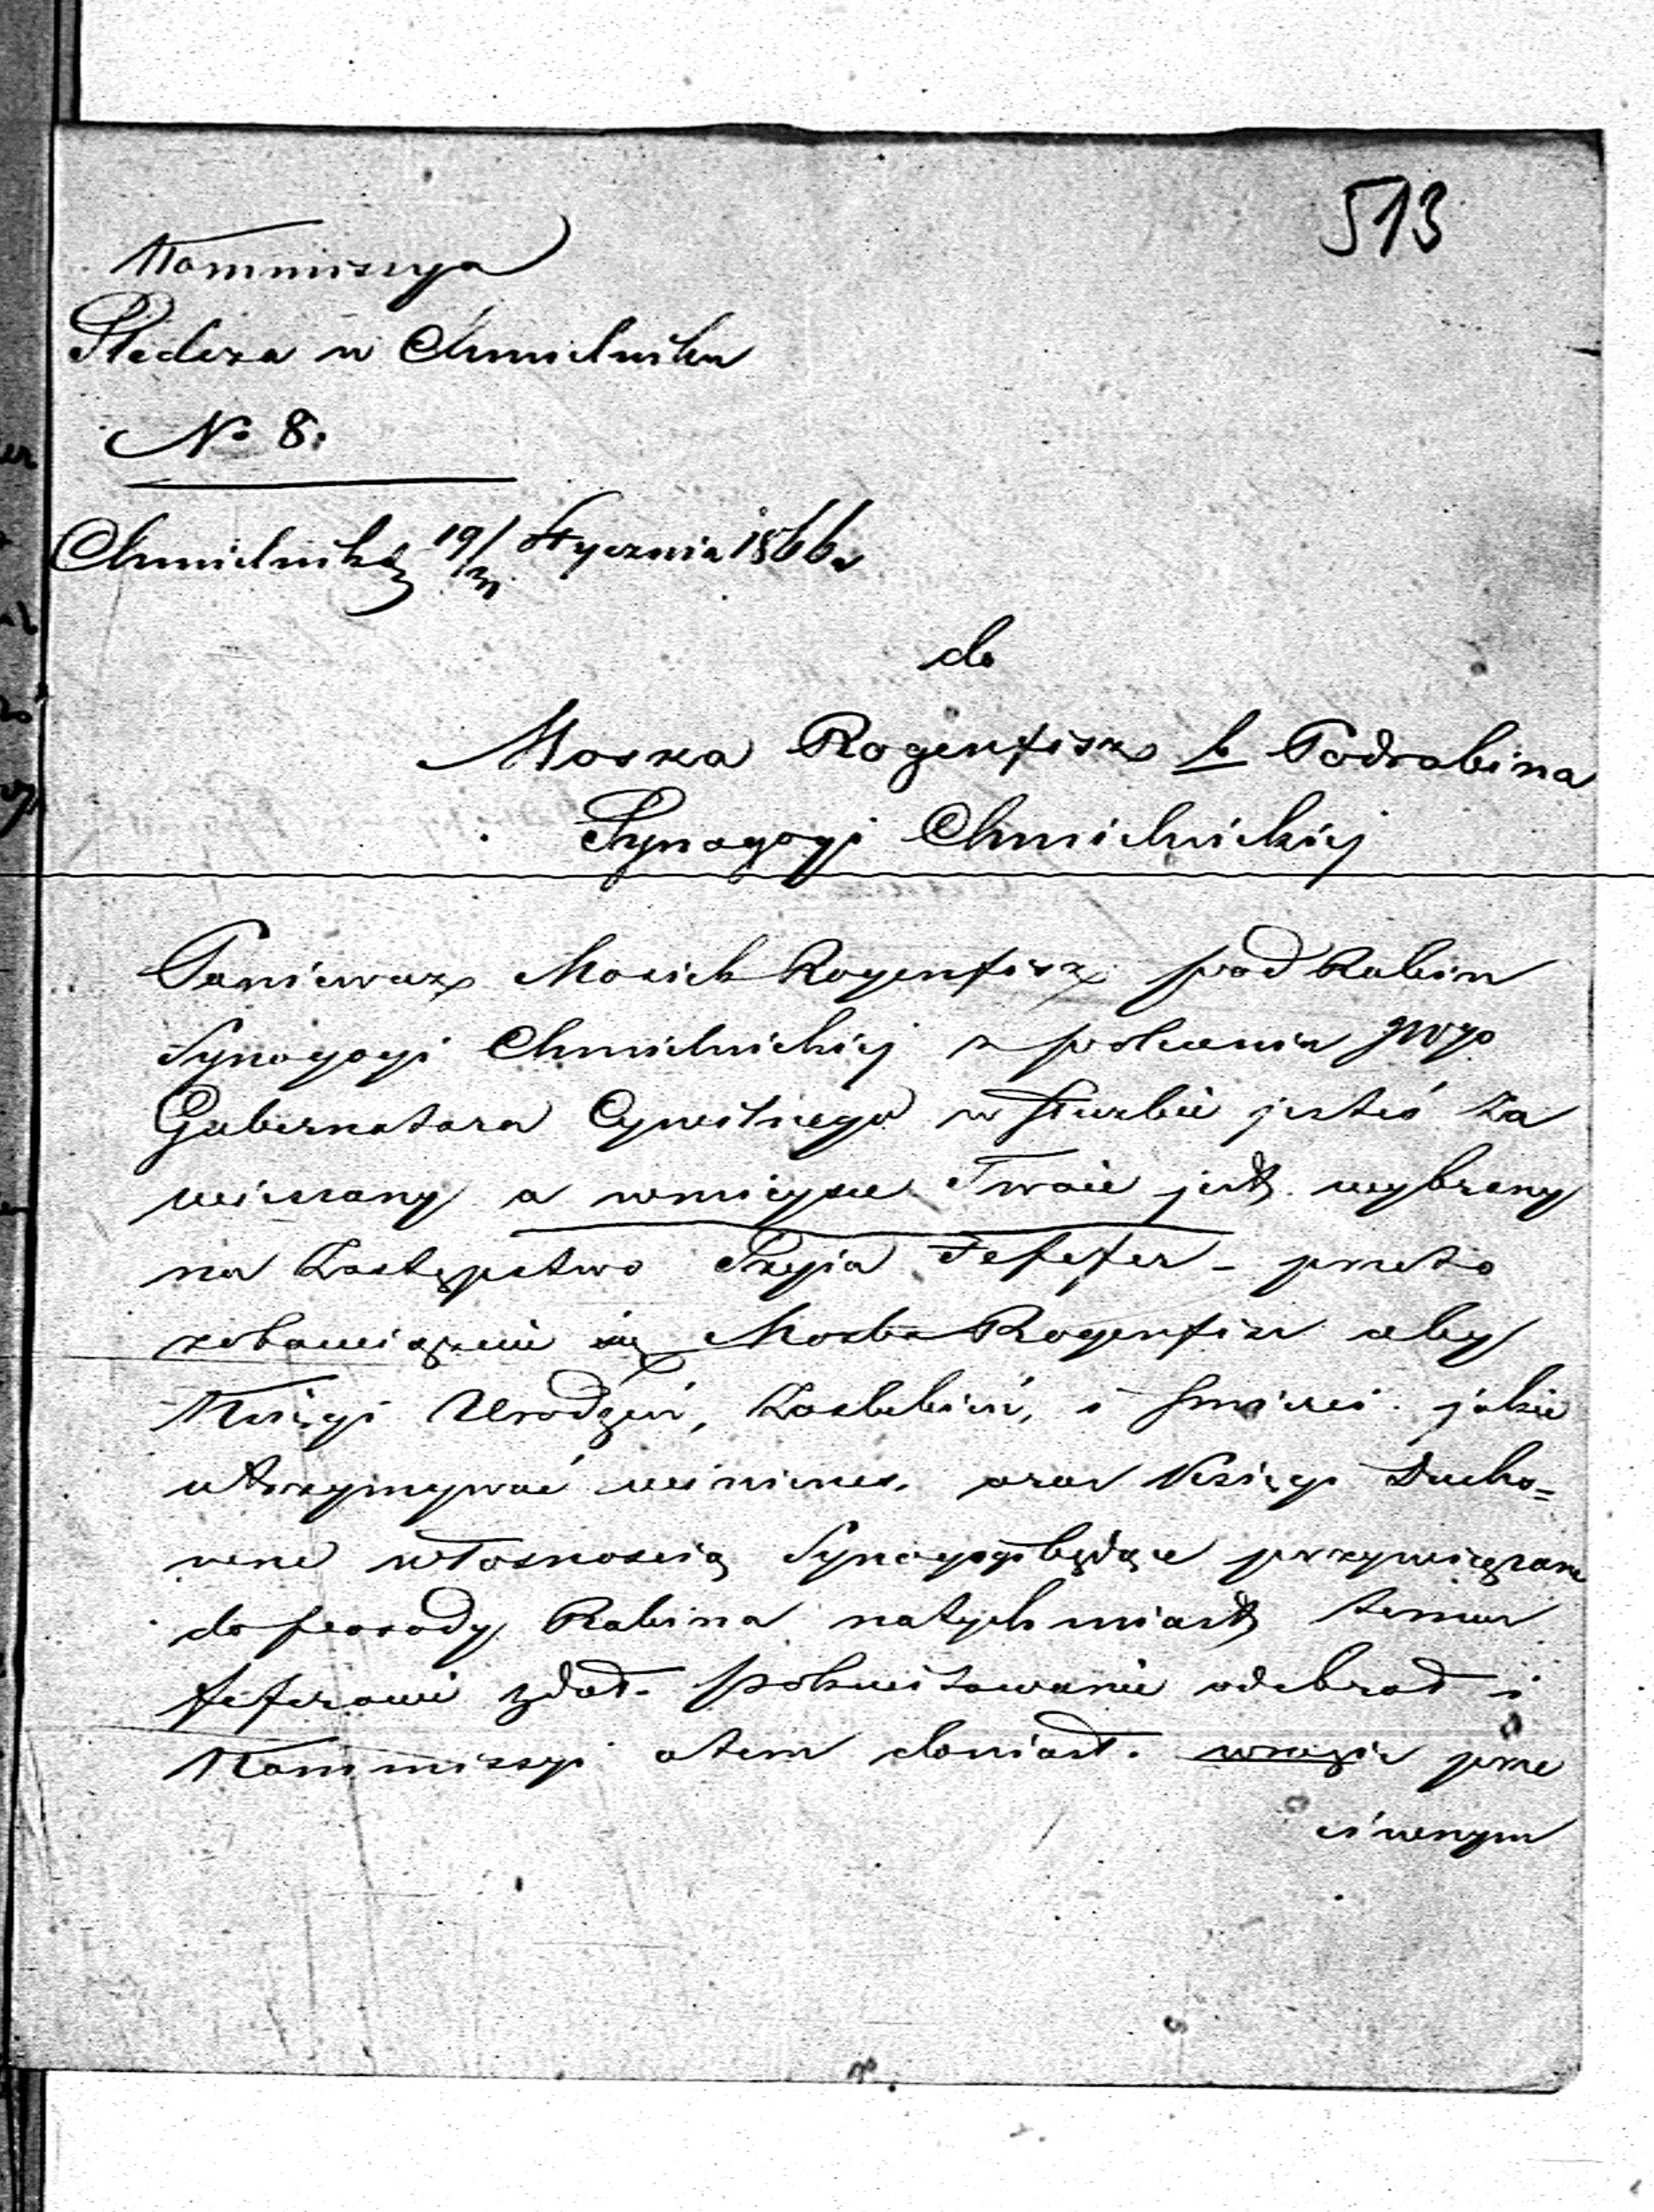 513
Kommissya
Śledcza w Chmielniku
No 8.
Chmielnik d 19/31 Stycznia 1866 r
do
Moska Rogenfisz b Podrabina
Synagogi Chmielnickiej
Poniewarz Mosiek Rogenfisz pod Rabin
Synagogi Chmielnickiej z polecenia
Gubernatora Cywilnego w służbie jesteś za
wieszony a wmieysce Twoie jest wybrany
na Zastępstwo Fefefer - przeto
zobowiązuie się Moska Rogenfisz aby
Księgi Urodzeń, Zaslubień, i Smierci jakie
utrzymywać winienes, oraz Księgi Ducho=
wne własnoscią Synagogi będące przywiązane
do posady Rabina natychmiast temuż
feferowi zdał. pokwitowanie odebrał i
Kommissyi otem doniosł. wrazie prze
ciwnym